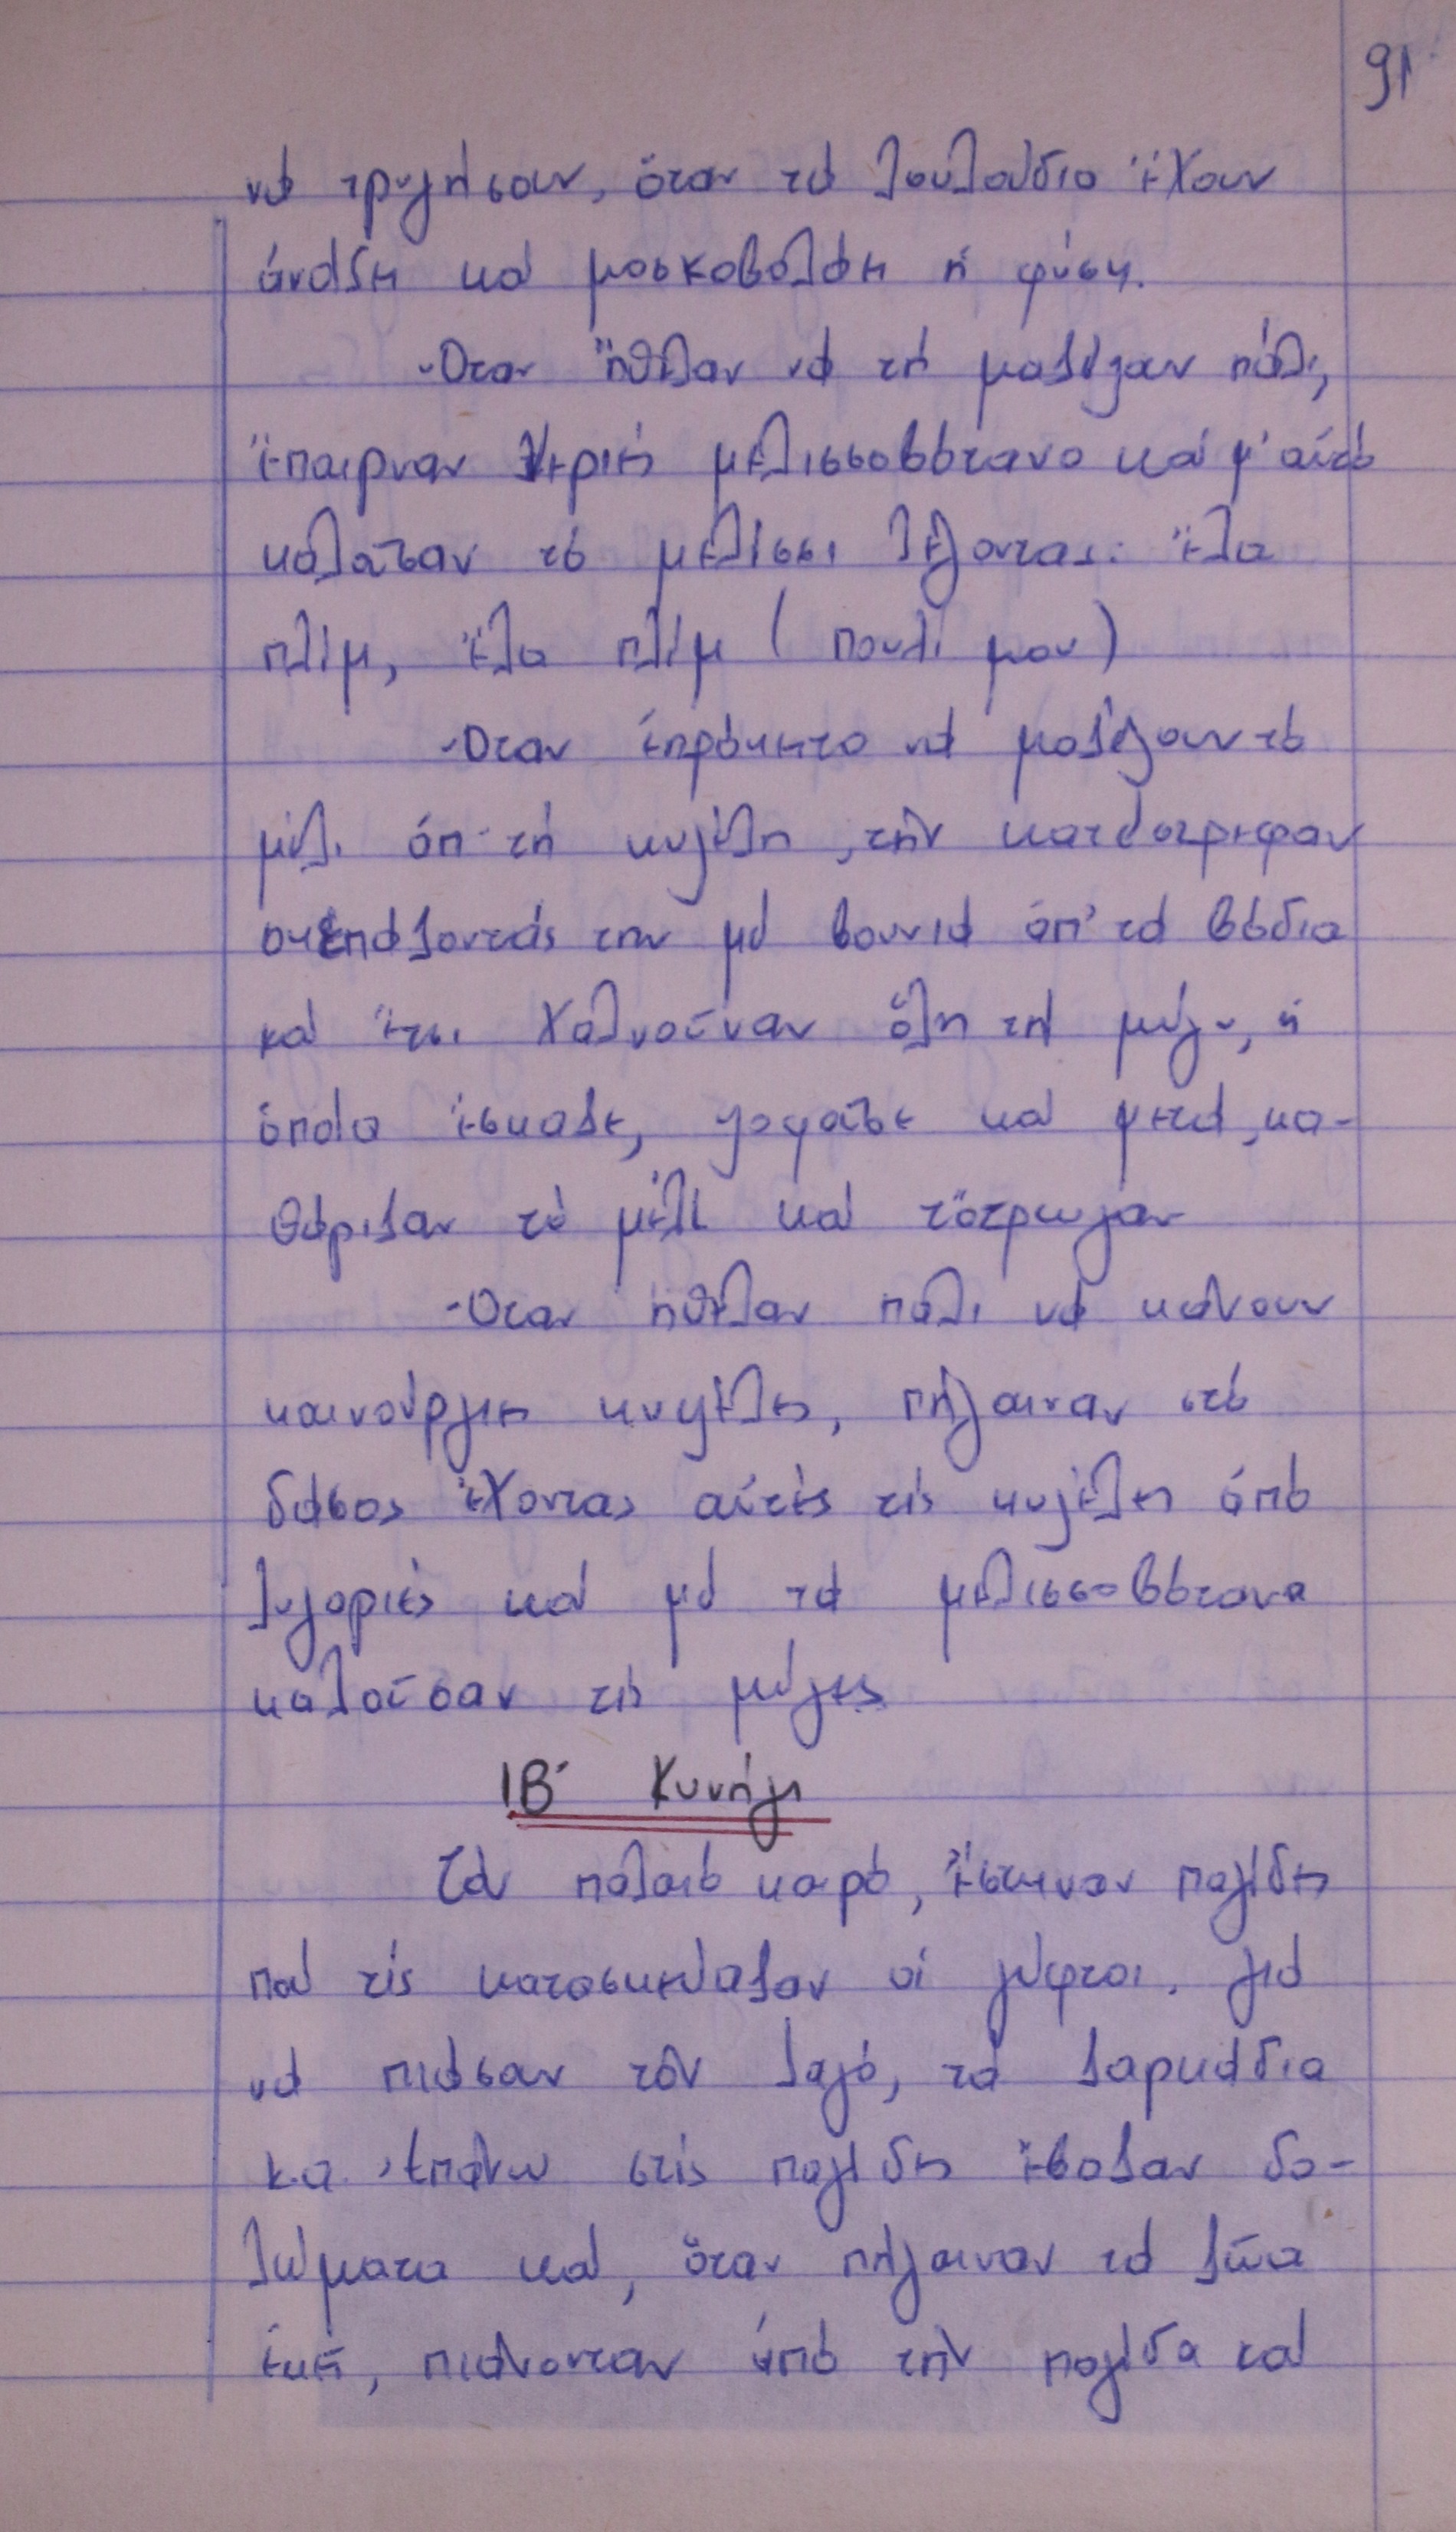 91
νά τρυγήσουν, ὅταν τά λουλούδια ἔχουν
ἀνάξει καί μοσκοβολάει ἡ φύση.
Ὅταν ἤθελαν νά τή μαζέψουν πάλι,
ἔπαιρναν ξερή μελισσοβότανο καί μ' αὐτό
καλοῦσαν τό μελίσσι λέγοντας: ἔλα
πλίμ, ἔλα πλίμ (πουλί μου)
Ὅταν ἐπρόκειτο νά μαζέψουν τό
μέλι ἀπ' τή κυψέλη, τήν κατέστρεφαν
σκεπάζοντάς την μέ βουνιά ἀπ' τά βόδια
καί ἔτσι χαλνοῦναν ὅλη τή μύγα, ἡ
ὁποία ἔσκαζε, ψοφοῦσε καί μετά, κα-
θάριζαν τό μέλι καί τὄτρωγαν
Ὅταν ἤθελαν πάλι νά κάνουν
καινούργιες κυψέλες, πήγαιναν στό
δάσος ἔχοντας αὐτές τίς κυψέλες ἀπό
λυγαριές καί μέ τά μελισσοβότανα
καλοῦσαν τίς μύγες
ΙΒ΄ Κυνήγι
Τόν παλαιό καιρό, ἔστηναν παγίδες
πού τίς κατασκεύαζαν οἱ γύφτοι, γιά
νά πιάσαν τόν λαγό, τά ζαρκάδια
κ.α. Ἐπάνω στίς παγίδες ἔβαζαν δο-
λώματα καί, ὅταν πήγαιναν τά ζῶα
ἐκεῖ, πιάνονταν ἀπό τήν παγίδα καί